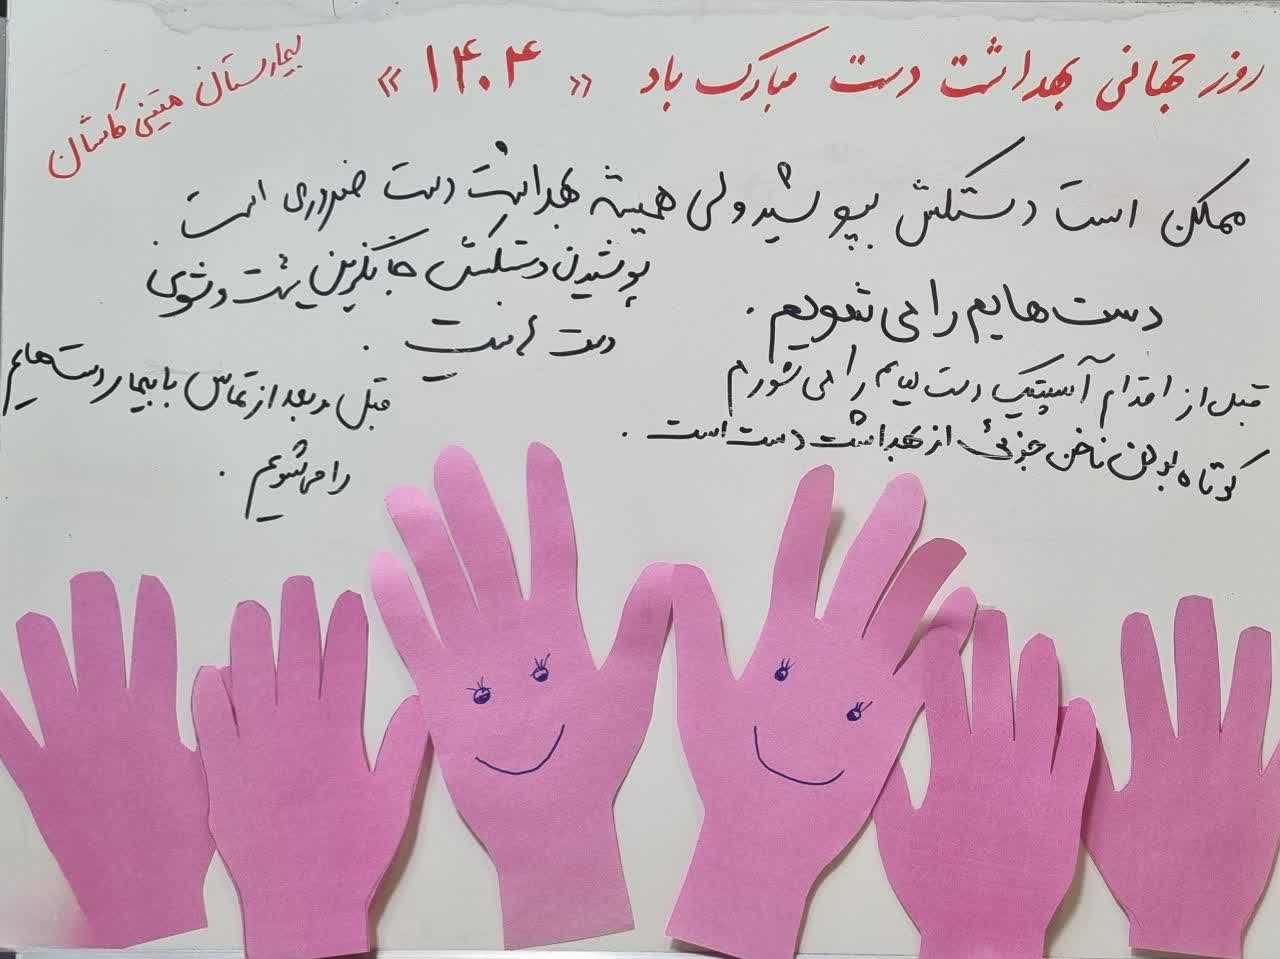 روز جهانی بهداشت دست مبارک باد «۱۴۰۴»
بیمارستان متینی کاشان
ممکن است دستکش بپوشید ولی همیشه بهداشت دست ضروری است.
پوشیدن دستکش جایگزین شست و شوی
دست نیست.
دست هایم را می شویم.
قبل از اقدام آسپتیک دست هایم را می شورم
کوتاه بودن ناخن جزئی از بهداشت دست است.
قبل و بعد از تماس با بیمار دست هایم
را می شویم.